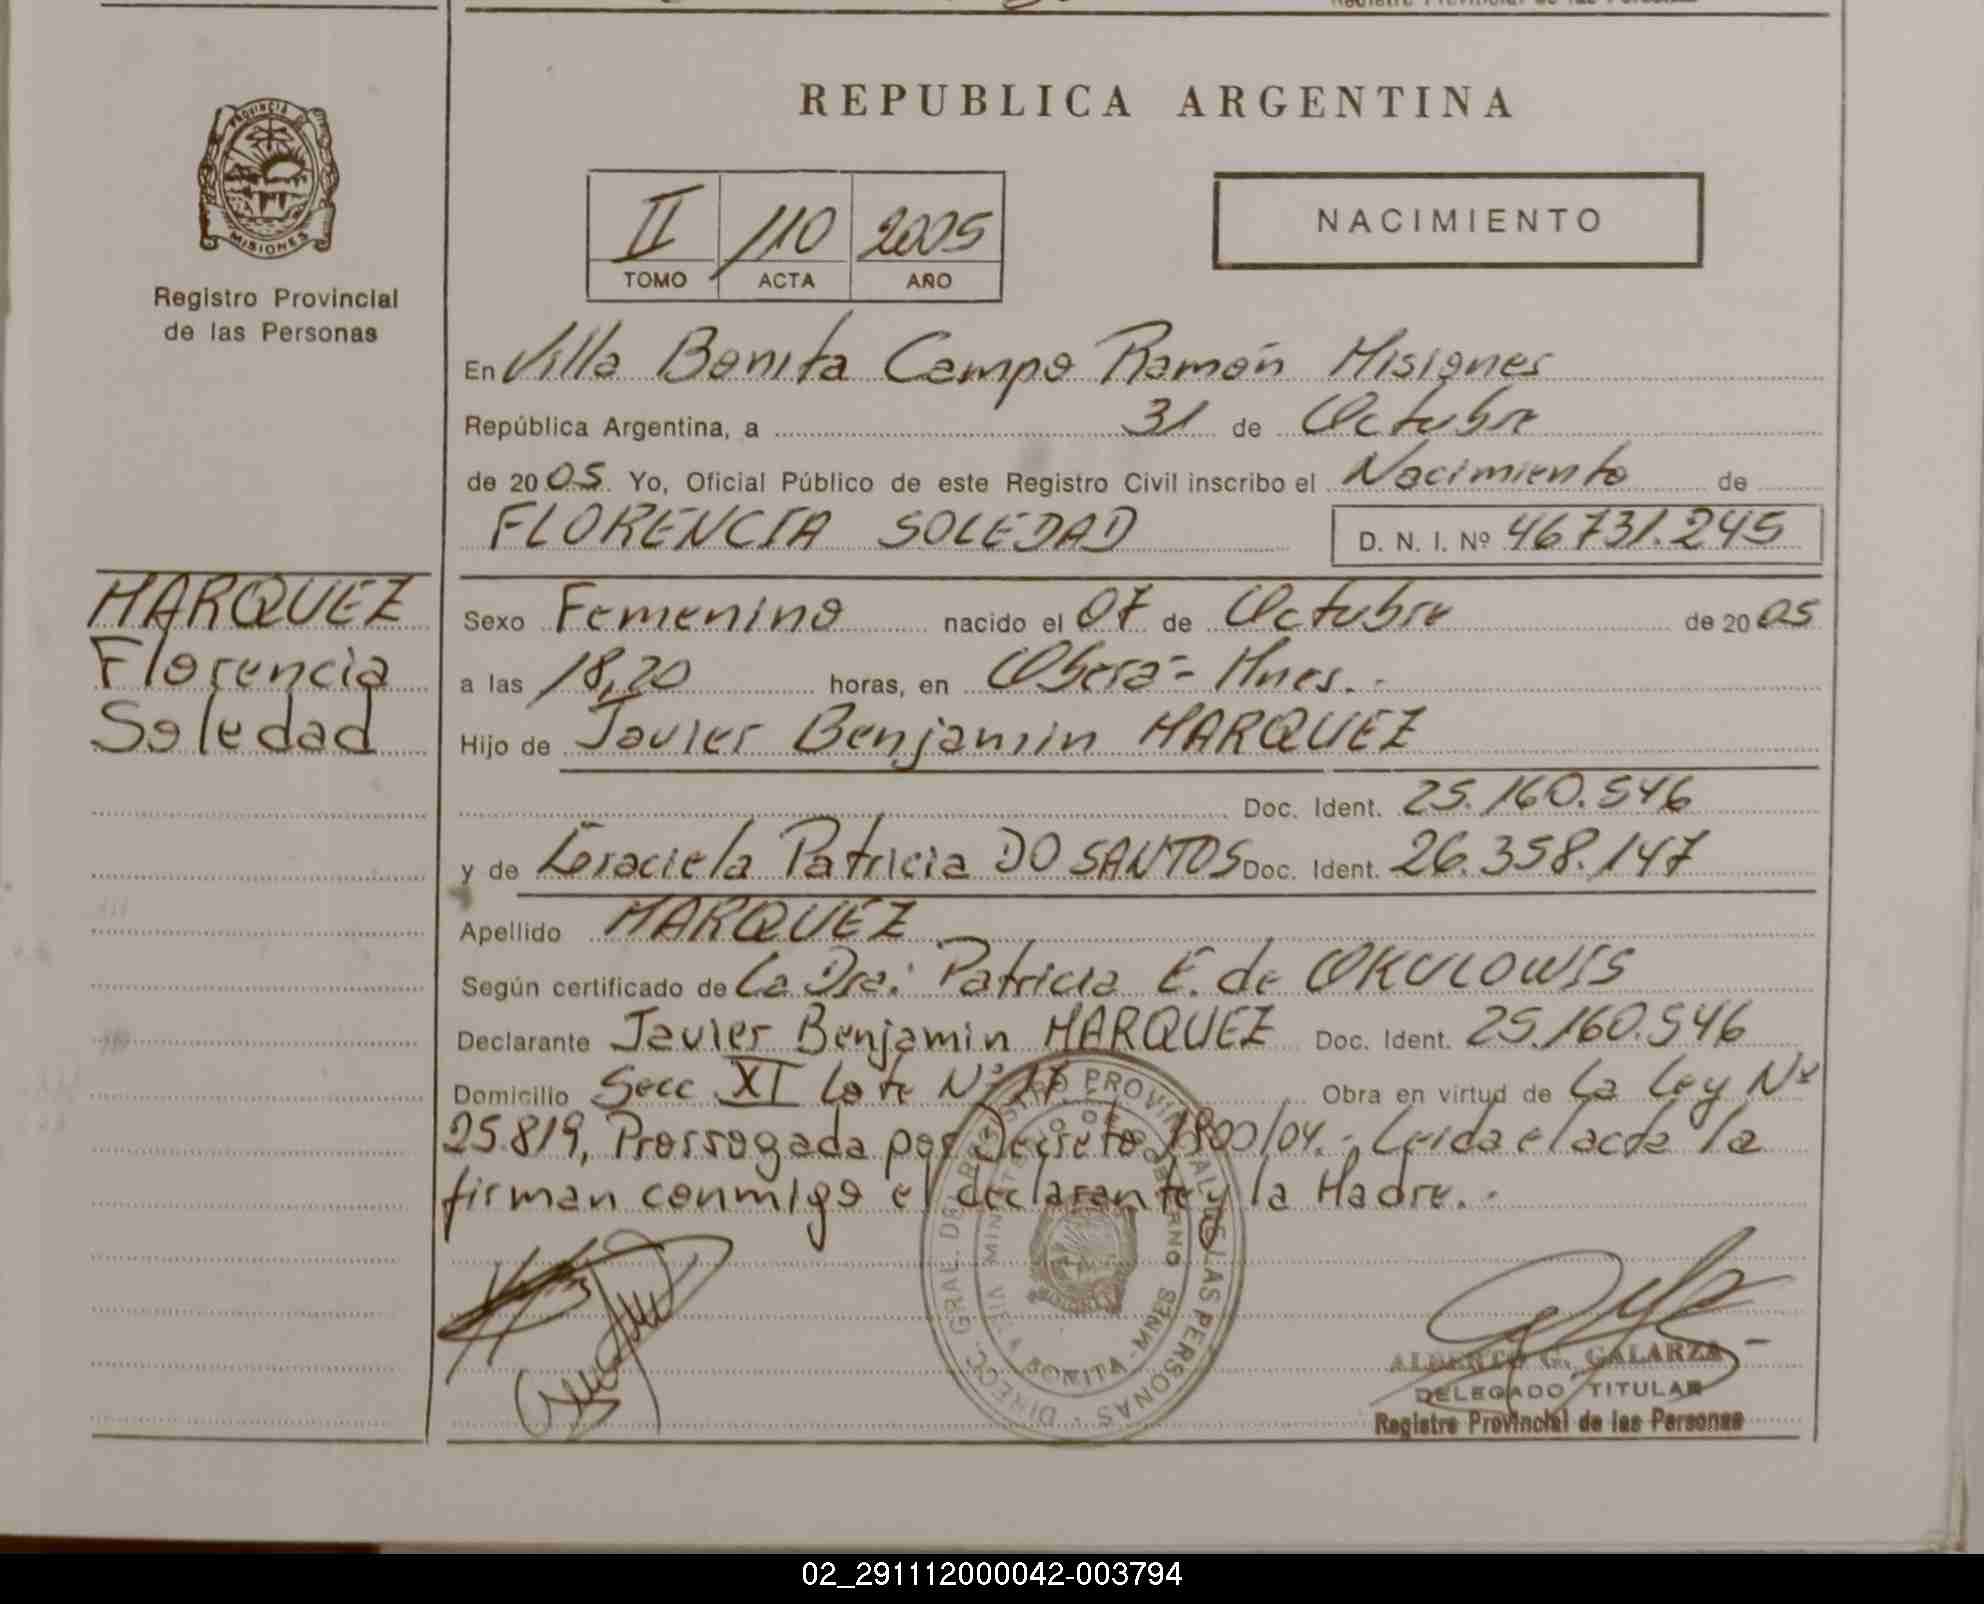 REPUBLICA ARGENTINA
PROVINCIA DE
MISIONES
Registro Provincial
de las Personas
II /110 2005
TOMO ACTA AÑO
NACIMIENTO
En Villa Bonita Campo Ramón Misiones
República Argentina, a 31 de Octubre
de 2005. Yo, Oficial Público de este Registro Civil inscribo el Nacimiento de
FLORENCIA SOLEDAD D. N. I. Nº 46731.245
MARQUEZ
Florencia
Soledad
Sexo Femenino nacido el 07 de Octubre de 2005
a las 18,20 horas, en Oberá - Mnes. -
Hijo de Javier Benjamin MARQUEZ
Doc. Ident. 25.160.546
y de Graciela Patricia DO SANTOS Doc. Ident. 26.358.147
Apellido MARQUEZ
Según certificado de La Dra: Patricia E. de OKULOWIS
Declarante Javier Benjamin MARQUEZ Doc. Ident. 25.160.546
Domicilio Secc XI Lote Nº 27 Obra en virtud de La Ley Nº
25.819, Prorrogada por Decreto 1800/04.- Leida el acta la
firman conmigo el declarante y la Madre. -
DIRECC. GRAL. DE REGISTRO PROVINCIAL DE LAS PERSONAS
MINISTERIO DE GOBIERNO
VILLA BONITA - MNES
ALBERTO G. GALARZA
DELEGADO TITULAR
Registro Provincial de las Personas
02_291112000042-003794